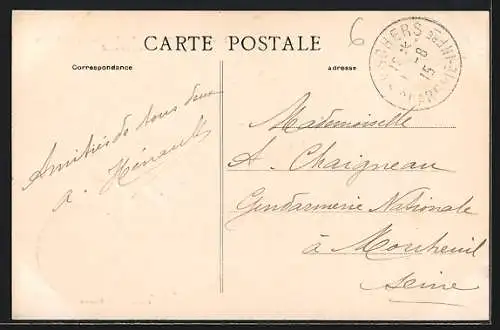 CARTE POSTALE
6
Correspondance
adresse
Amitiés de tous deux
A. Hénault
Mademoiselle
A. Chaigneau
Gendarmerie Nationale
à Montreuil
Seine